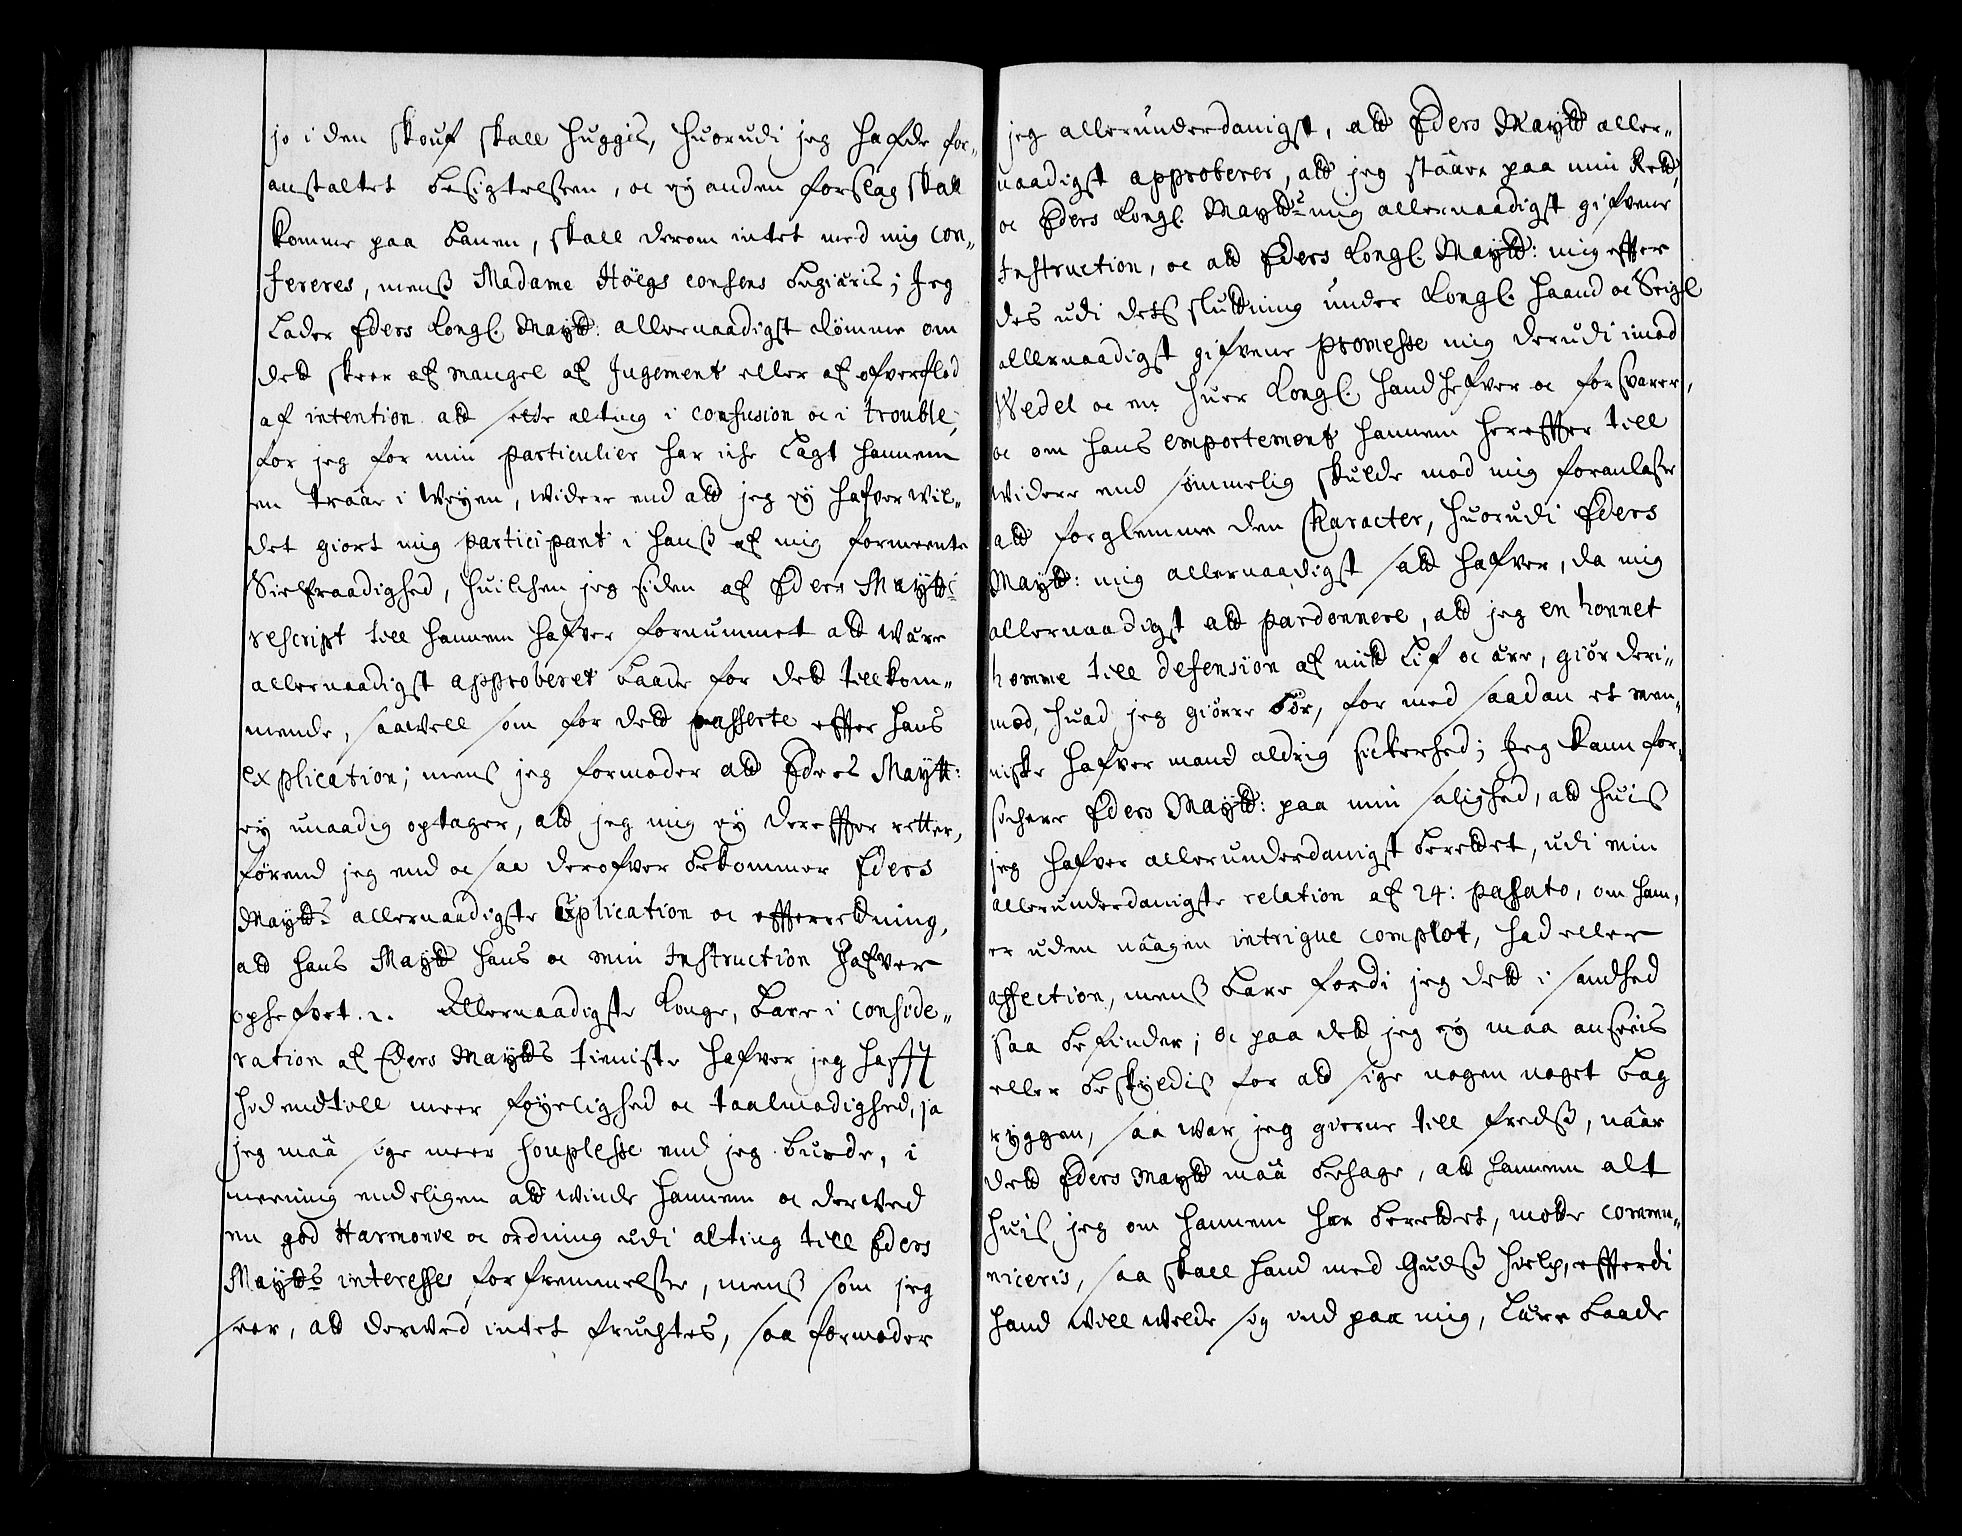 jo i den skouf skall huggis, huorudi jeg hafde for„
anstaltet besigtelssen, oc ey anden forslag skall
komme paa banen, skall derom intet med mig con„
fereres, menß Madame Höegs consens begiæris; Jeg
lader Eders Kongl. Maytt: allernaadigst dömme om
dett skeer af mangel af Jugement eller af ofverflod
af intention att sette alting i confusion oc i trouble,
for jeg for min particulier har iche lagt hannem
en traar i Veyen, widere end att jeg ey hafver wil„
det giort mig participant i hanß af mig formeente
Sielfraadighed, huilchen jeg siden af Eders Maytts
rescript till hannem hafver fornummet att være
allernaadigst approberet baade for dett tillkom„
mende, saavell som for dett passerte effter hans
explication; mens jeg formoder att Eders Maytt:
ey unaadig optager, att jeg mig ey dereffter retter,
förend jeg end oc saa derofver bekommer Eders
Maytts allernaadigste Explication oc effterretning,
att hans Maytt hans oc min Instruction hafver
ophefvet. Allernaadigste Konge, bare i conside„
ration af Eders Maytts tieniste hafver jeg hafft
hid indtill meer föyelighed oc taalmodighed, ja
jeg maa sige meer souplesse end jeg burde, i
meening endeligen att winde hannem oc derved
en god Harmonie oc ordning udi alting till Eders
Maytts interesses forfremmelsse, menß som jeg
seer, att derved intet fruchtes, saa formoder
jeg allerunderdanigst, att Eders Maytt aller„
naadigst approberer, att jeg staar paa min Rett,
oc Eders Kongl. Maytts mig allernaadigst gifvene
Instruction, oc att Eders Kongl. Maytt: mig effter
des udi detß slutning under Kongl. haand oc Seigl
allernaadigst gifvene promesse mig derudi imod
Wedel oc en huer Kongl. handhefver oc forsvarer,
oc om hans emportement hannem hereffter till
widere end sömmelig skulde mod mig foranlasse
att forglemme den Character, huorudi Eders
Maytt: mig allernaadigst satt hafver, da mig
allernaadigst att pardonnere, att jeg en honnet
homme till defension af mit Lif oc ære, giör deri„
mod, huad jeg giörre bör, for med saadan et men„
niske hafver mand aldrig sickerhed; Jeg kann for„
sichere Eders Maytt: paa min salighed, att huis
jeg hafver allerunderdanigst berettet, udi min
allerunderdanigste relation af 24: passato, om ham,
er uden naagen intrigue complot, had eller
affection, menß bare fordi jeg dett i sandhed
saa befinder; oc paa dett jeg ey maa anseeis
eller beskyldiß for att sige nogen noget bag
ryggen, saa war jeg gierne till fredß, naar
dett Eders Maytt maa behage, att hannem alt
huis jeg om hannem har berettet, motte commu„
niceris, saa skall hand med Gudß hielp, effterdi
hand will welte sig ind paa mig, lære baade